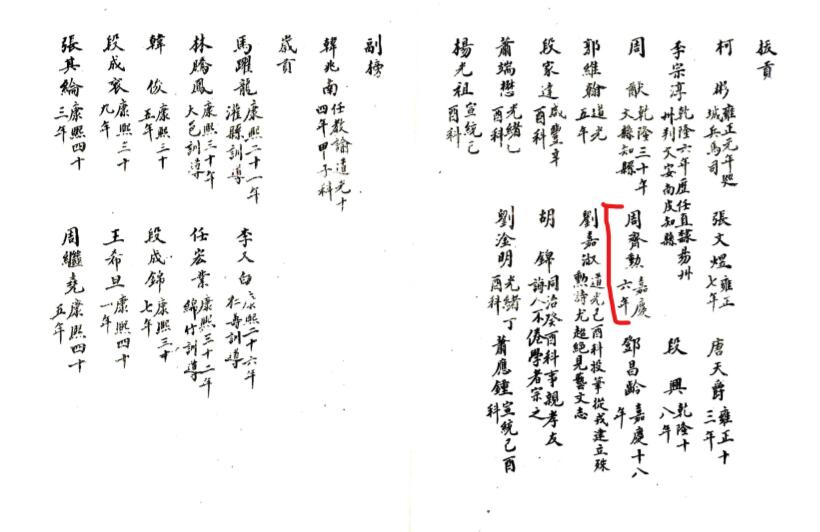 拔貢
柯 彬 雍正元年 城兵馬司 張文煜 雍正七年 唐天爵 雍正十三年
李宗淳 乾隆六年歷任直隸易州州判文安南皮知縣 段 興 乾隆十八年
周 猷 乾隆三十年文縣知縣 周齊勳 嘉慶六年 鄧昌齡 嘉慶十八年
郭維翰 道光五年 劉嘉淑 道光己酉科投筆從戎建立殊勳詩尤超絕見藝文志
段家達 咸豐辛酉科 胡 錦 同治癸酉科事親孝友誨人不倦學者宗之
蕭端懋 光緒乙酉科 劉淦明 光緒丁酉科 蕭應鍾 宣統己酉科
楊光祖 宣統己酉科
副榜
韓兆南 任教諭道光十四年甲子科
歲貢
馬躍龍 康熙二十一年灌縣訓導 李又白 康熙二十六年仁壽訓導
林騰鳳 康熙三十年大邑訓導 任宏業 康熙三十二年綿竹訓導
韓 俊 康熙三十五年 段成錦 康熙三十七年
段成袞 康熙三十九年 王希旦 康熙四十一年
張其綸 康熙四十三年 周繼堯 康熙四十五年